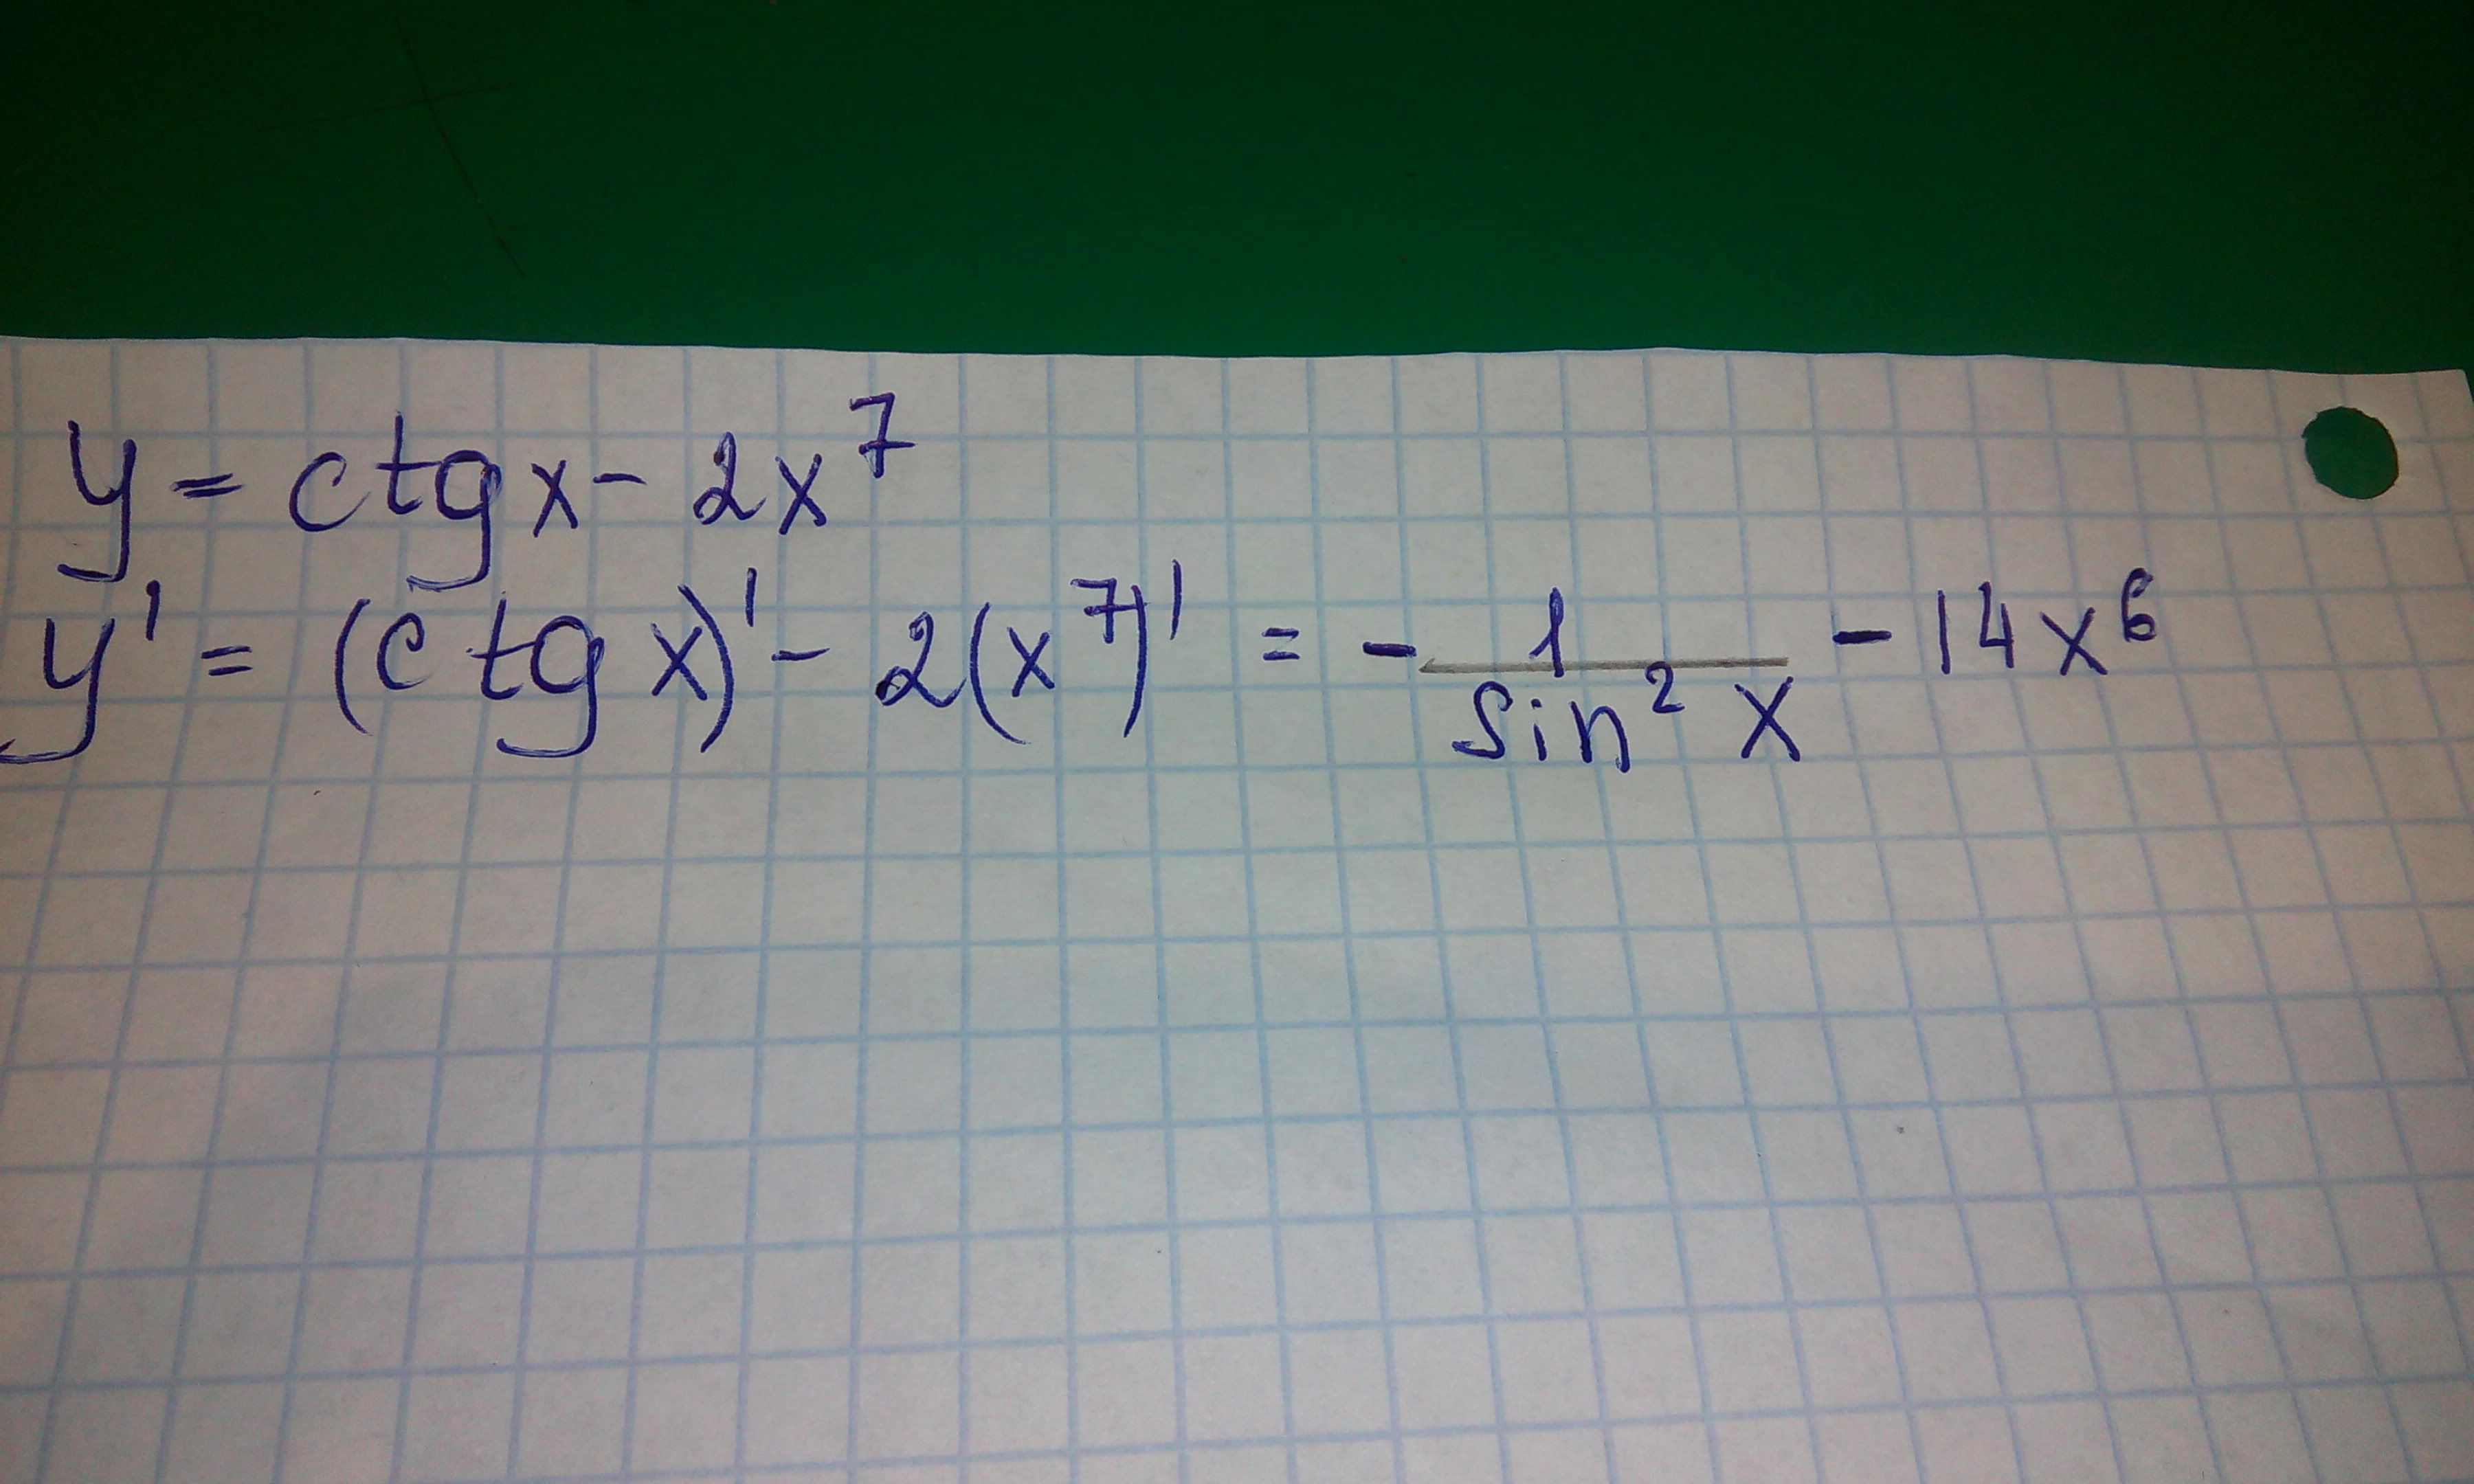 y = ctg x - 2x⁷
y' = (ctg x)' - 2(x⁷)' = - 1/sin² x - 14x⁶